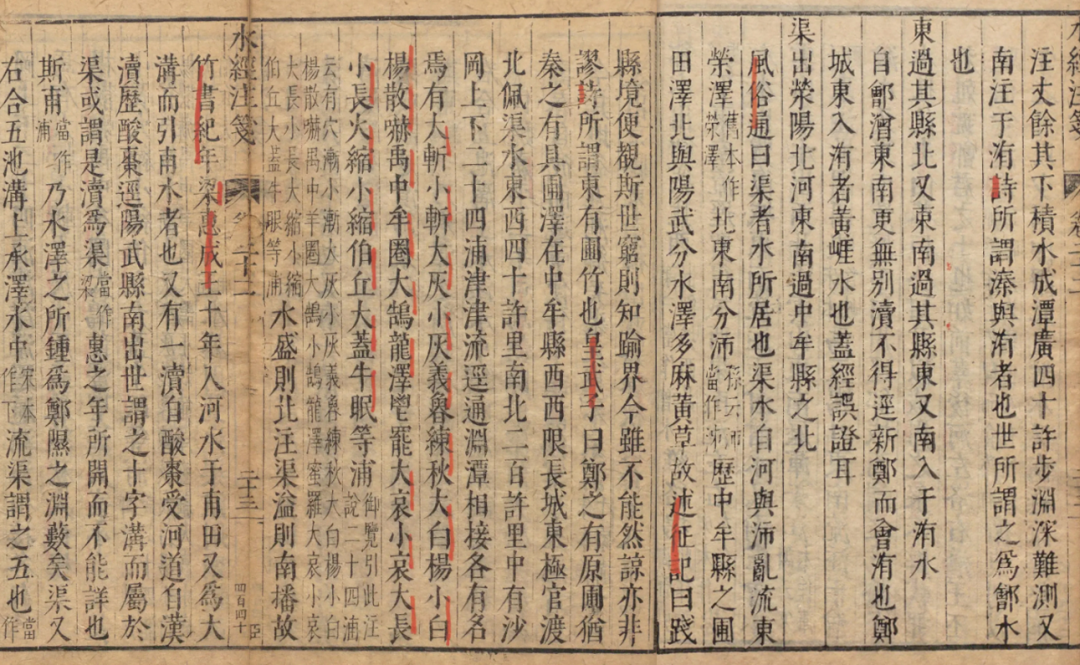 注丈餘其下積水成潭廣四十許步淵深難測又
南注于洧詩所謂溱與洧者也世所謂之為鄶水
也
東過其縣北又東南過其縣東又南入于洧水
自鄶潧東南更無別瀆不得逕新鄭而會洧也鄭
城東入洧者黃崕水也蓋經誤證耳
渠出滎陽北河東南過中牟縣之北
風俗通曰渠者水所居也渠水自河與沛亂流東
滎澤舊本作榮澤北東南分沛孫云沛當作泲歷中牟縣之圃
田澤北與陽武分水澤多麻黃草故述征記曰踐
縣境便覩斯世窮則知踰界今雖不能然諒亦非
謬詩所謂東有圃竹也皇武子曰鄭之有原圃猶
秦之有具圃澤在中牟縣西西限長城東極官渡
北佩渠水東西四十許里南北二百許里中有沙
岡上下二十四浦津津流逕通淵潭相接各有名
焉有大斬小斬大灰小灰義魯練秋大白楊小白
楊散嚇禹中牟圈大鵠龍澤𦋺罷大哀小哀大長
小長大縮小縮伯丘大蓋牛眠等浦御覽引此注說二十四浦
云有穴漸小漸大灰小灰義魯練秋大白楊小白楊散嚇禹中羊圈大鵠小鵠龍澤蜜羅大哀小哀
大長小長大縮小縮伯丘大蓋牛眼等浦水盛則北注渠溢則南播故
水經注箋 卷二十二 二十三 四百四十 臣
竹書紀年梁惠成王十年入河水于甫田又為大
溝而引甫水者也又有一瀆自酸棗受河道自漢
瀆歷酸棗逕陽武縣南出世謂之十字溝而屬於
渠或謂是瀆為渠當作梁惠之年所開而不能詳也
斯甫當作浦乃水澤之所鍾為鄭隰之淵藪矣渠又
右合五池溝上承澤水中宋本作下流渠謂之五也當作